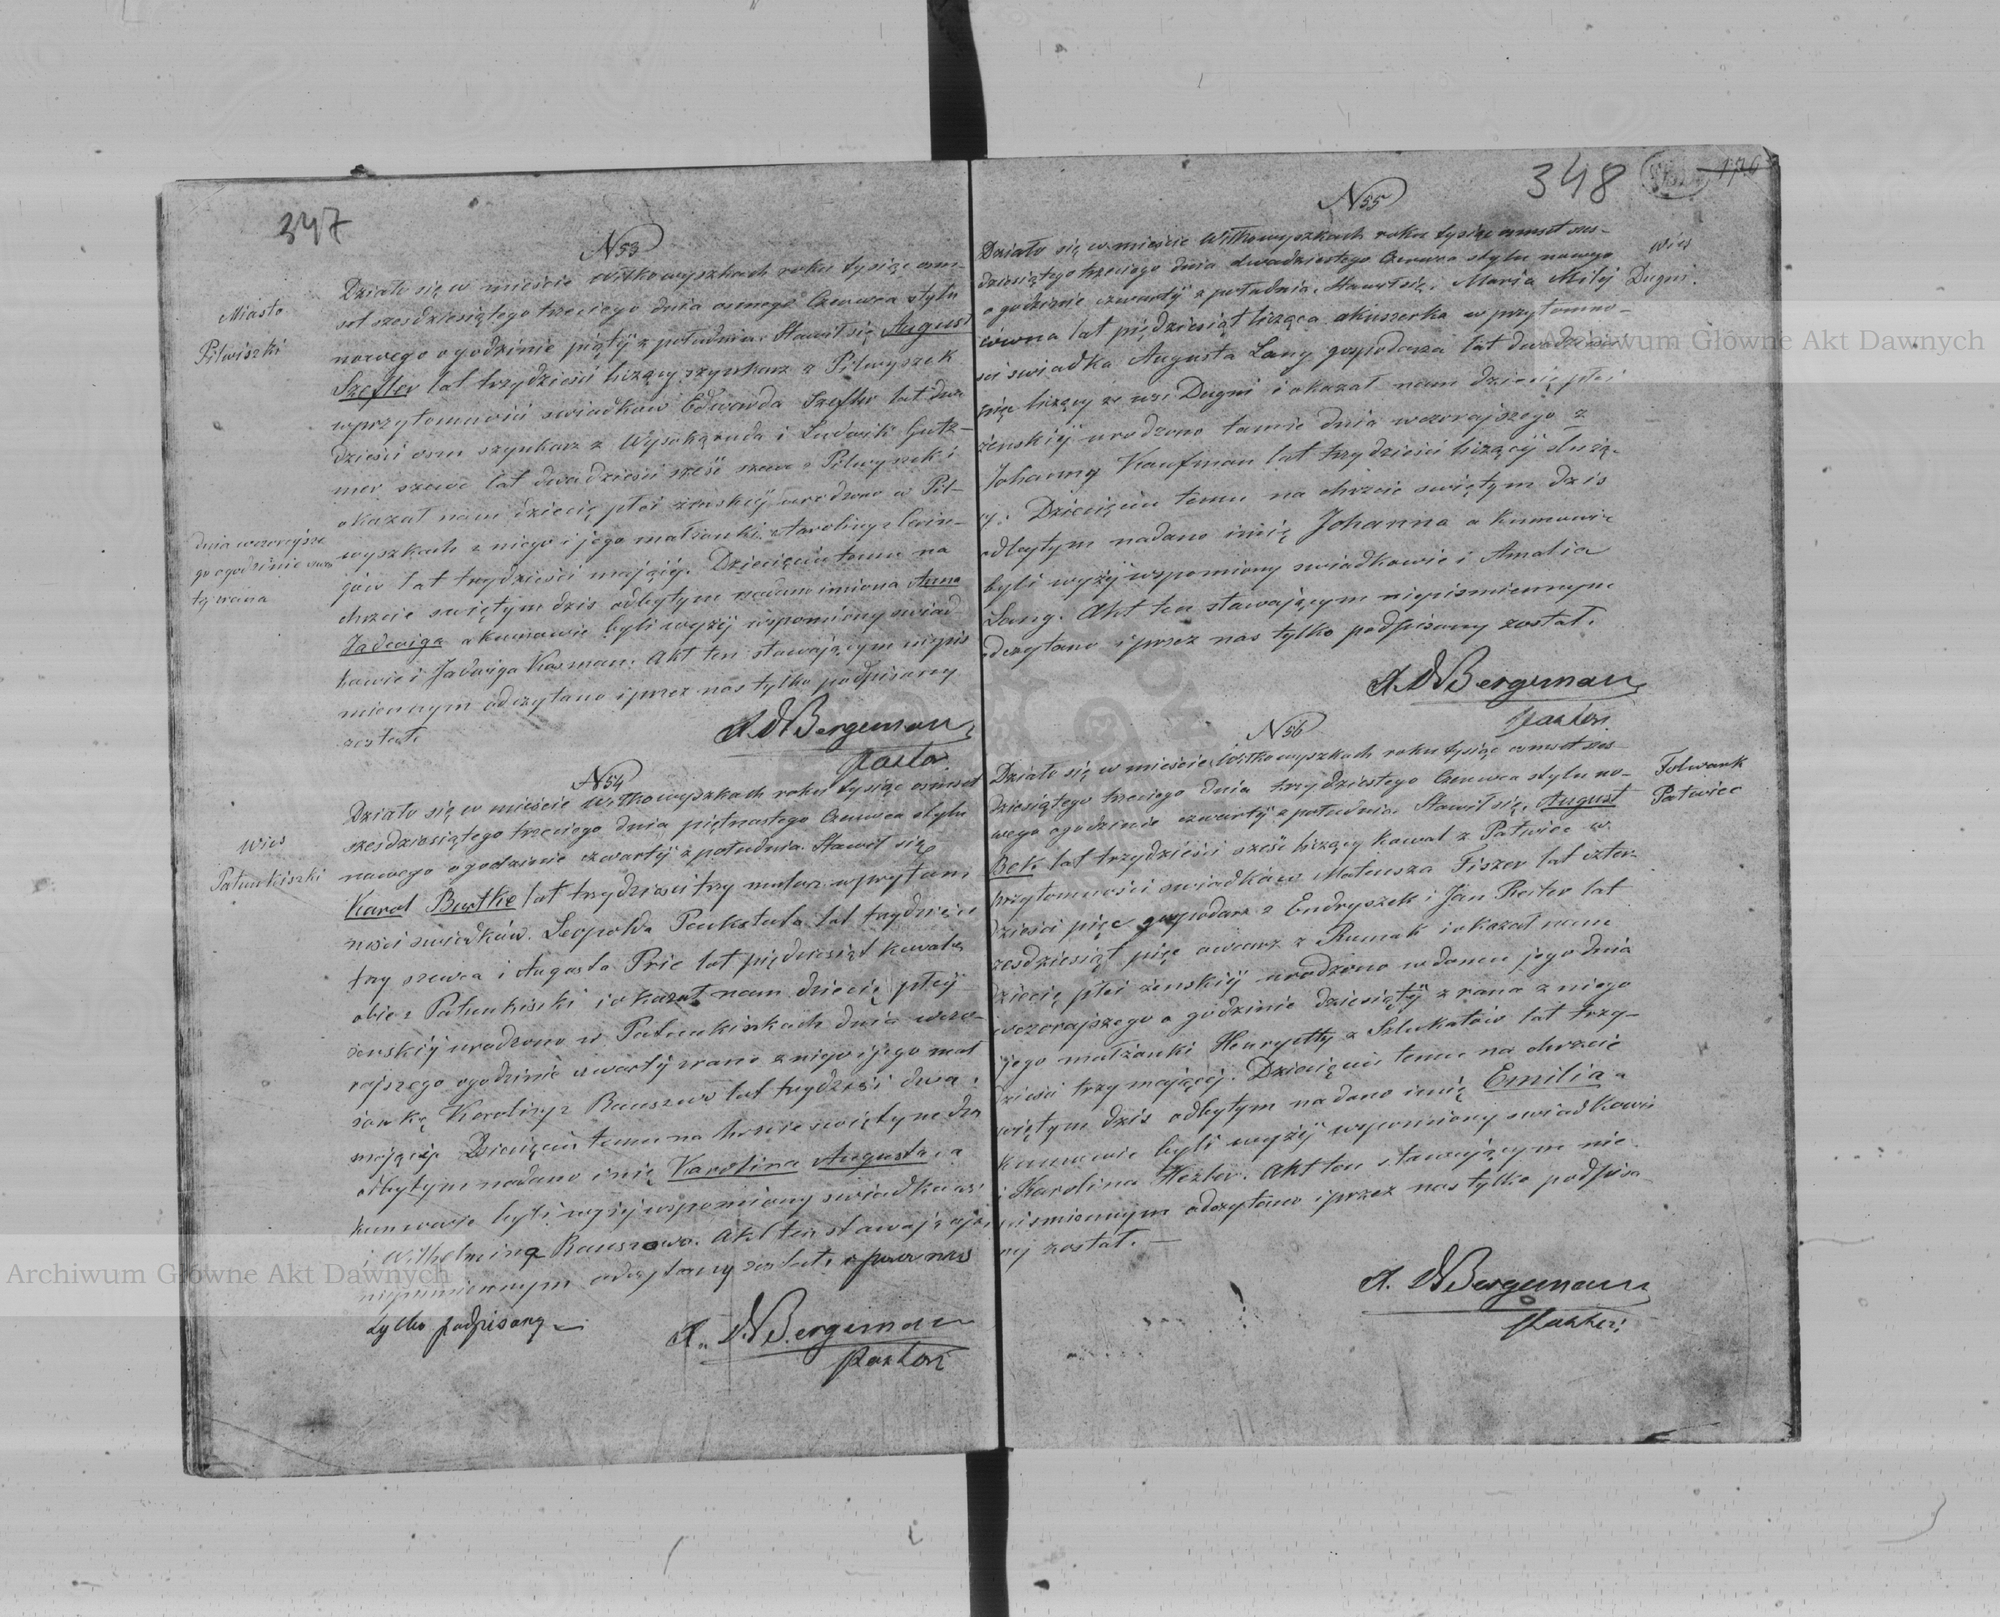 347
N 53
Miasto
Pilwiszki
Działo się w mieście Wiłkowyszkach roku tysiąc ośm-
set sześdziesiątego trzeciego dnia osmego Czerwca stylu
nowego o godzinie piątÿ z południa. Stawił się August
Szefler lat trzydzieści liczący szynkarz z Pilwyszek
w przytomności swiadków Edwarda Szefler lat dwa
dzieści osm szynkarz z Wysokąruda i Ludwik Gutz-
mer szewc lat dwadzieści sześć szewc z Pilwyszek i
okazał nam dziecię płci żenskiÿ urodzono w Pil-
dnia wczorajsze
go o godzinie
tÿ zrana
wyszkach z niego i jego małżonki Karoliny z
lat trzydzieści mającÿ. Dziecięciu temu na
chrzcie swiętym dzis odbytym nadano imiona Anna
Jadwiga a kumowie byli wyżÿ wspomniony swiad-
kowie i Jadwiga Kosman. Akt ten stawającym niepis
miennym odczytano i przez nas tylko podpisany
został.
A. W Bergeman
Pastor.
N 54
Wies
Patunkiszki
Działo się w mieście Wiłkowyszkach roku tysiąc osmset
sześdziesiątego trzeciego dnia piętnastego Czerwca stylu
nowego o godzinie czwartÿ z południa. Stawił się
Karol Burtke lat trzydzieści trzy w przytom
ności swiadków. Leopolda lat trzydzieści
trzy szewca i Augusta Pric lat pięćdziesiąt kowala
obie z Patunkiszki i okazał nam dziecię płcÿ
żenskiÿ urodzono w Patunkiszkach dnia wczo-
rajszego o godzinie czwartÿ zrana z niego i jego mał
żonkę Karoliny z Rauszow lat trzydzieści dwa
mającÿ. Dziecięciu temu na chrzcie swiętym dzis
odbytym nadano imię Karolina Augusta, a
kumowie byli wyżÿ wspomniony swiadkowi
i Wilhelmina Rauszowa. Akt ten stawającym
niepismiennym odczytany został i przez nas
tylko podpisany.
A. W. Bergeman
Pastor
348
176
N 55
wies
Dugni.
Działo się w mieście Wiłkowyszkach roku tysiąc osmset szes-
dziesiątego trzeciego dnia dwadziestego Czerwca stylu nowego
o godzinie czwartÿ z południa. Stawił się. Maria Milÿ
lat pięćdziesiąt licząca akuszerka w przytomno-
sci swiadka Augusta Lang gospodarza lat dwadzieścia
pięć liczący ze wsi Dugni i okazał nam dziecię płci
żenskiÿ urodzono tamże dnia wczorajszego z
Johanny Kaufman lat trzydzieści liczącÿ służą-
cÿ. Dziecięciu temu na chrzcie swiętym dzis
odbytym nadano imię Johanna a kumowie
byli wyżÿ wspomniony swiadkowie i Amalia
Lang. Akt ten stawającym niepismiennym
odczytano i przez nas tylko podpisany został.
A. W Bergeman
Pastor.
N 56
Folwark
Patwiec
Działo się w mieście Wiłkowyszkach roku tysiąc osmset szes-
dziesiątego trzeciego dnia trzydziestego Czerwca stylu no-
wego o godzinie czwartÿ z południa. Stawił się. August
Bek lat trzydzieści sześć liczący kowal z Patwiec w
przytomności swiadków Mateusza Fiszer lat czter-
dzieści pięć gospodarz z Endryszek i Jan Reiter lat
szesdziesiąt pięć owczarz z Rumak i okazał nam
dziecię płci żenskiÿ urodzono w domu jego dnia
wczorajszego o godzinie dziesiątÿ z rana z niego
jego małżonki Henryetty z Szlukatow lat trzy-
dzieści trzy mającÿ. Dziecięciu temu na chrzcie
swiętym dzis odbytym nadano imię Emilia a
kumowie byli wyżÿ wspomniony swiadkowie
i Karolina Hezler. Akt ten stawającym nie
pismiennym odczytano i przez nas tylko podpisa-
ny został. —
A. W Bergeman
Pastor.
Archiwum Główne Akt Dawnych
Archiwum Główne Akt Dawnych